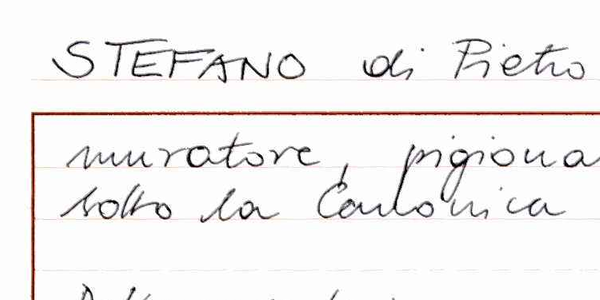 STEFANO di Pietro
muratore, pigiona
sotto la Canonica